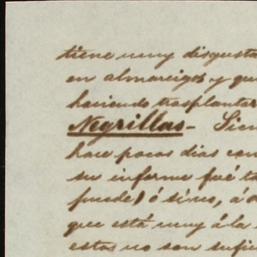 tiene muy disgusta
en almacigos y que
haciendo trasplantar
Negrillas - Sien
hace pocos dias con
su informe fué ta
puede) ó sino, á
que está muy á la
estas no son sufi